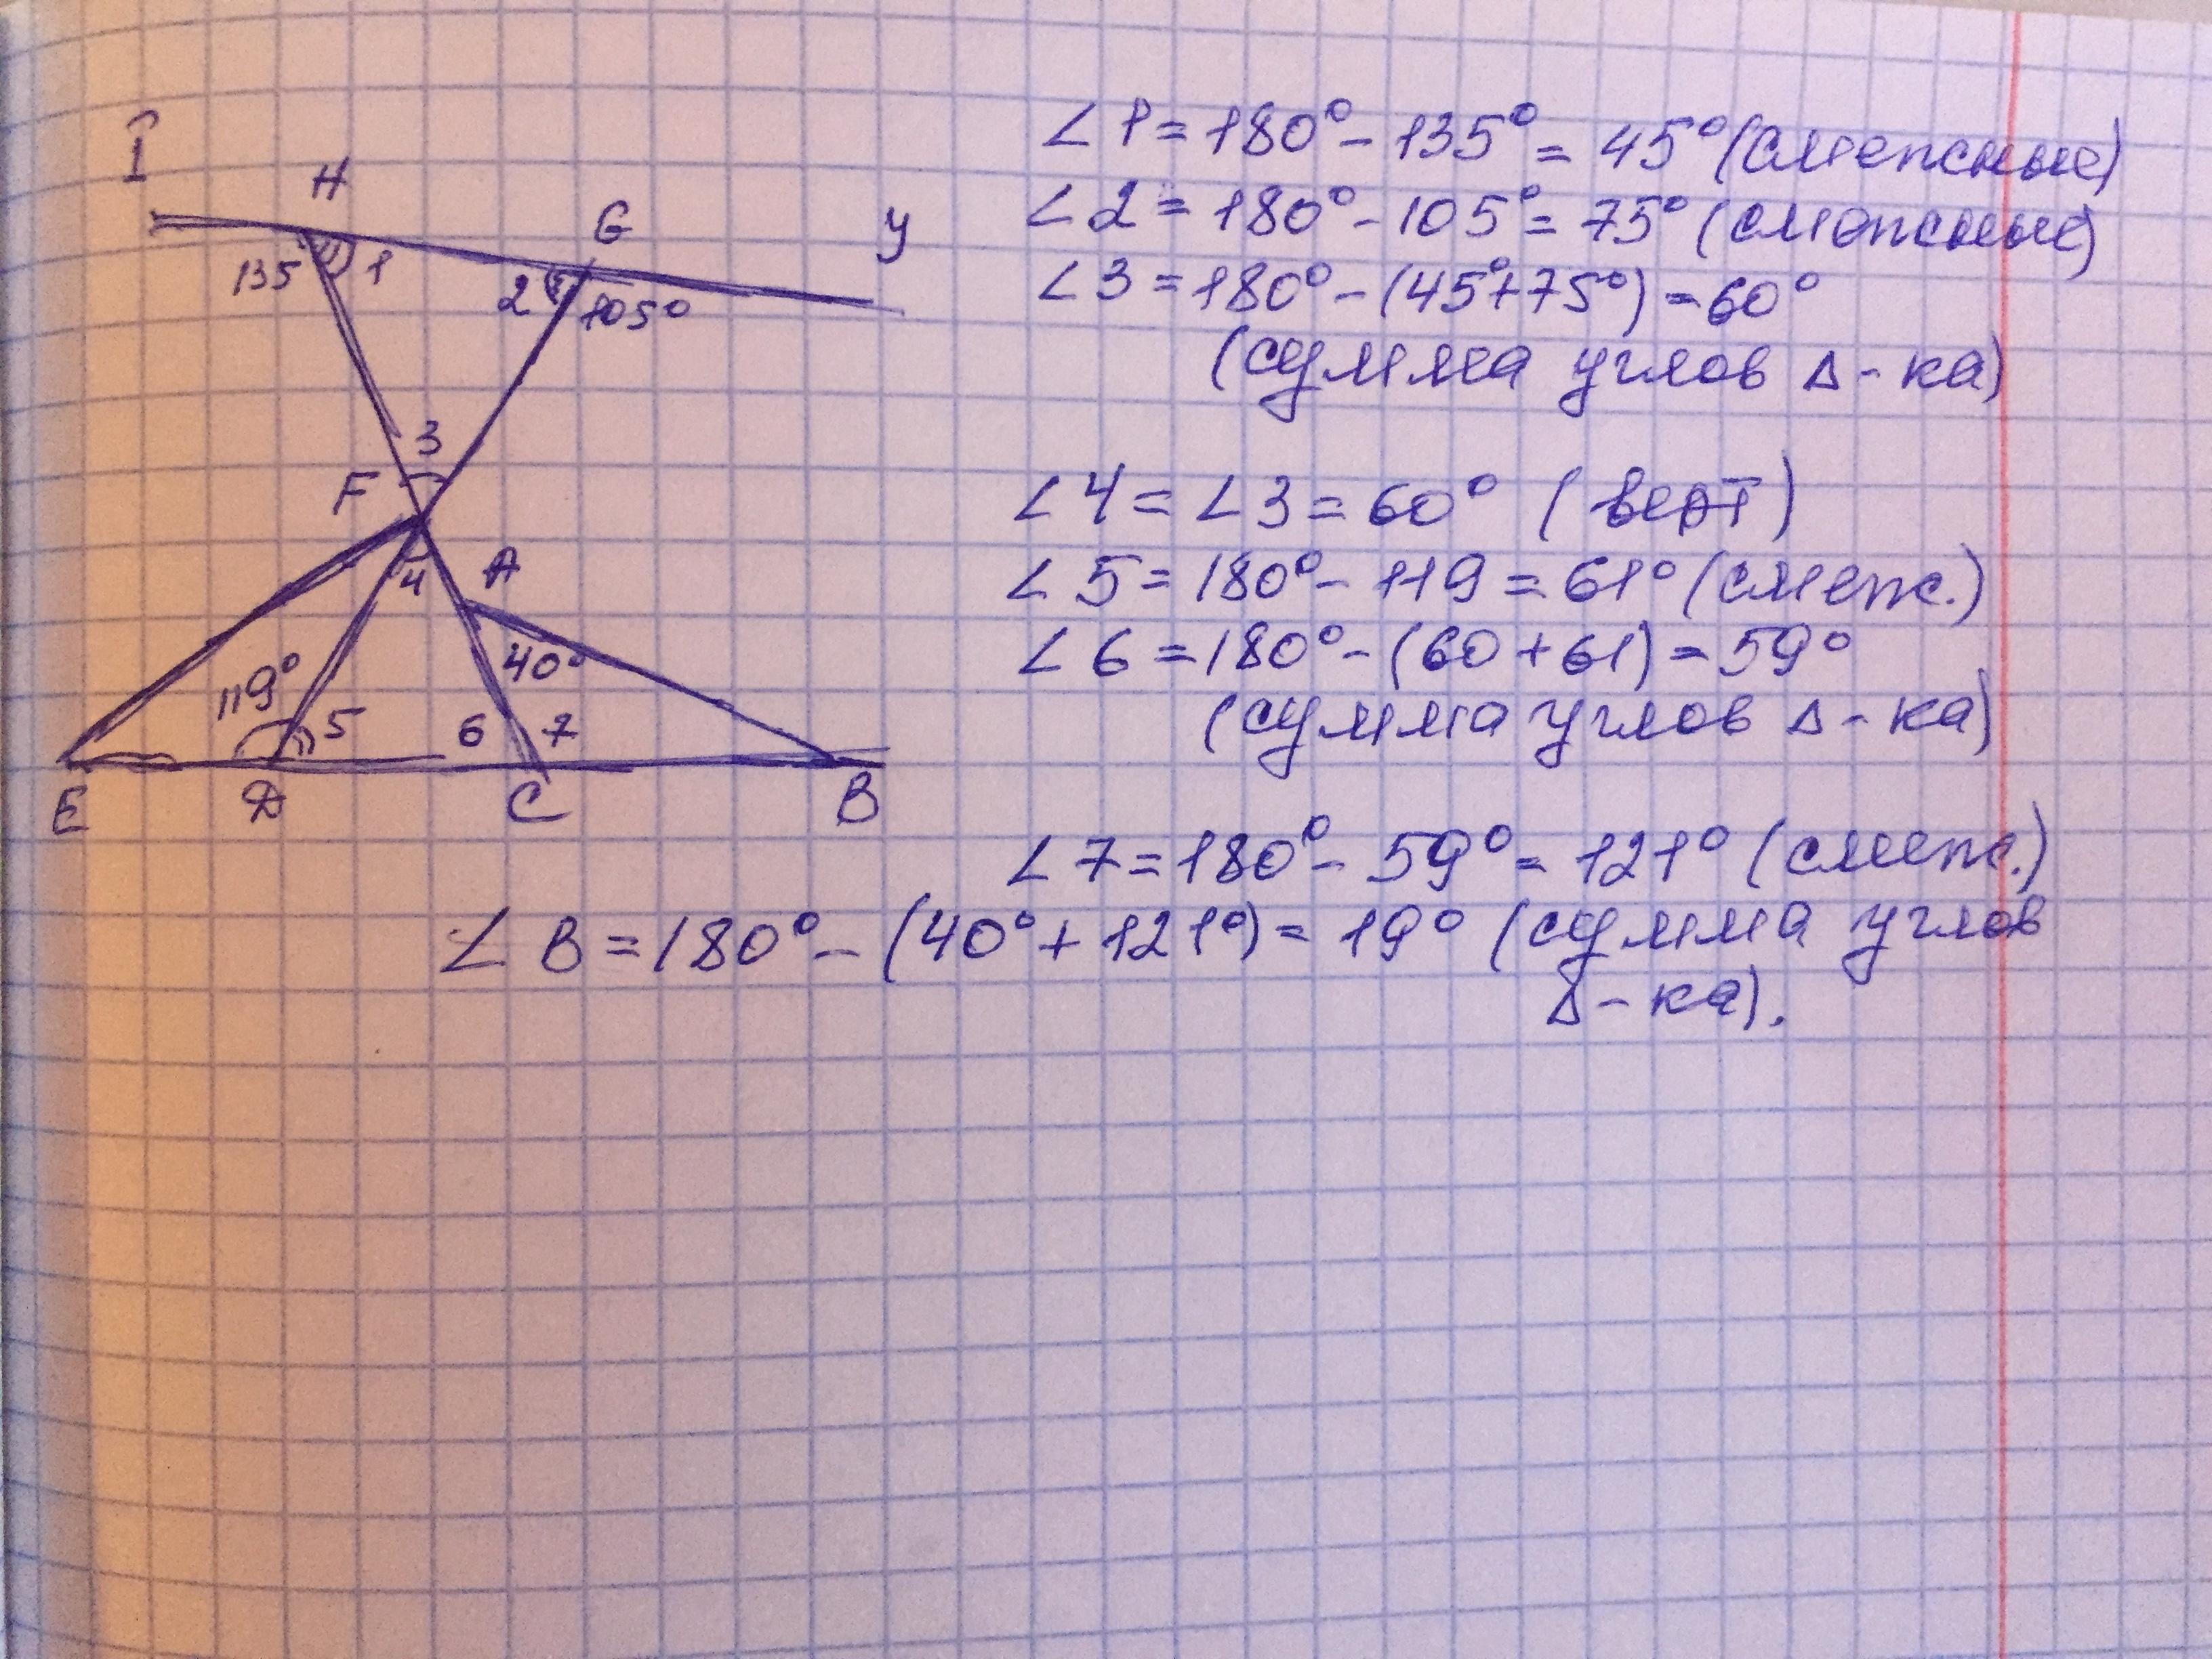 I
H
G
У
135
1
2
105°
3
F
4
A
40°
119°
5
6
7
E
D
C
B
∠1 = 180° - 135° = 45° (смежные)
∠2 = 180° - 105° = 75° (смежные)
∠3 = 180° - (45° + 75°) = 60°
(сумма углов Δ-ка)
∠4 = ∠3 = 60° (верт)
∠5 = 180° - 119 = 61° (смеж.)
∠6 = 180° - (60 + 61) = 59°
(сумма углов Δ-ка)
∠7 = 180° - 59° = 121° (смеж.)
∠B = 180° - (40° + 121°) = 19° (сумма углов
Δ-ка).